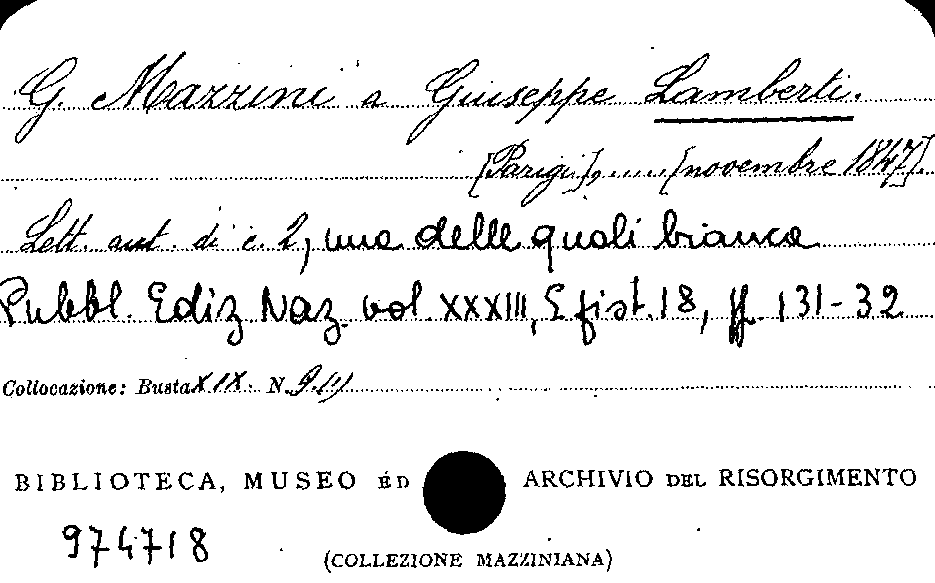 G. Mazzini a Giuseppe Lamberti.
[Parigi], ..... [novembre 1847].
Lett. aut. di c. 2, una delle quali bianca
Pubbl. Ediz Naz. vol. XXXIII, Epist. 18, pp. 131-32
Collocazione: Busta XIX. N. 9
BIBLIOTECA, MUSEO ED ARCHIVIO DEL RISORGIMENTO
974718
(COLLEZIONE MAZZINIANA)